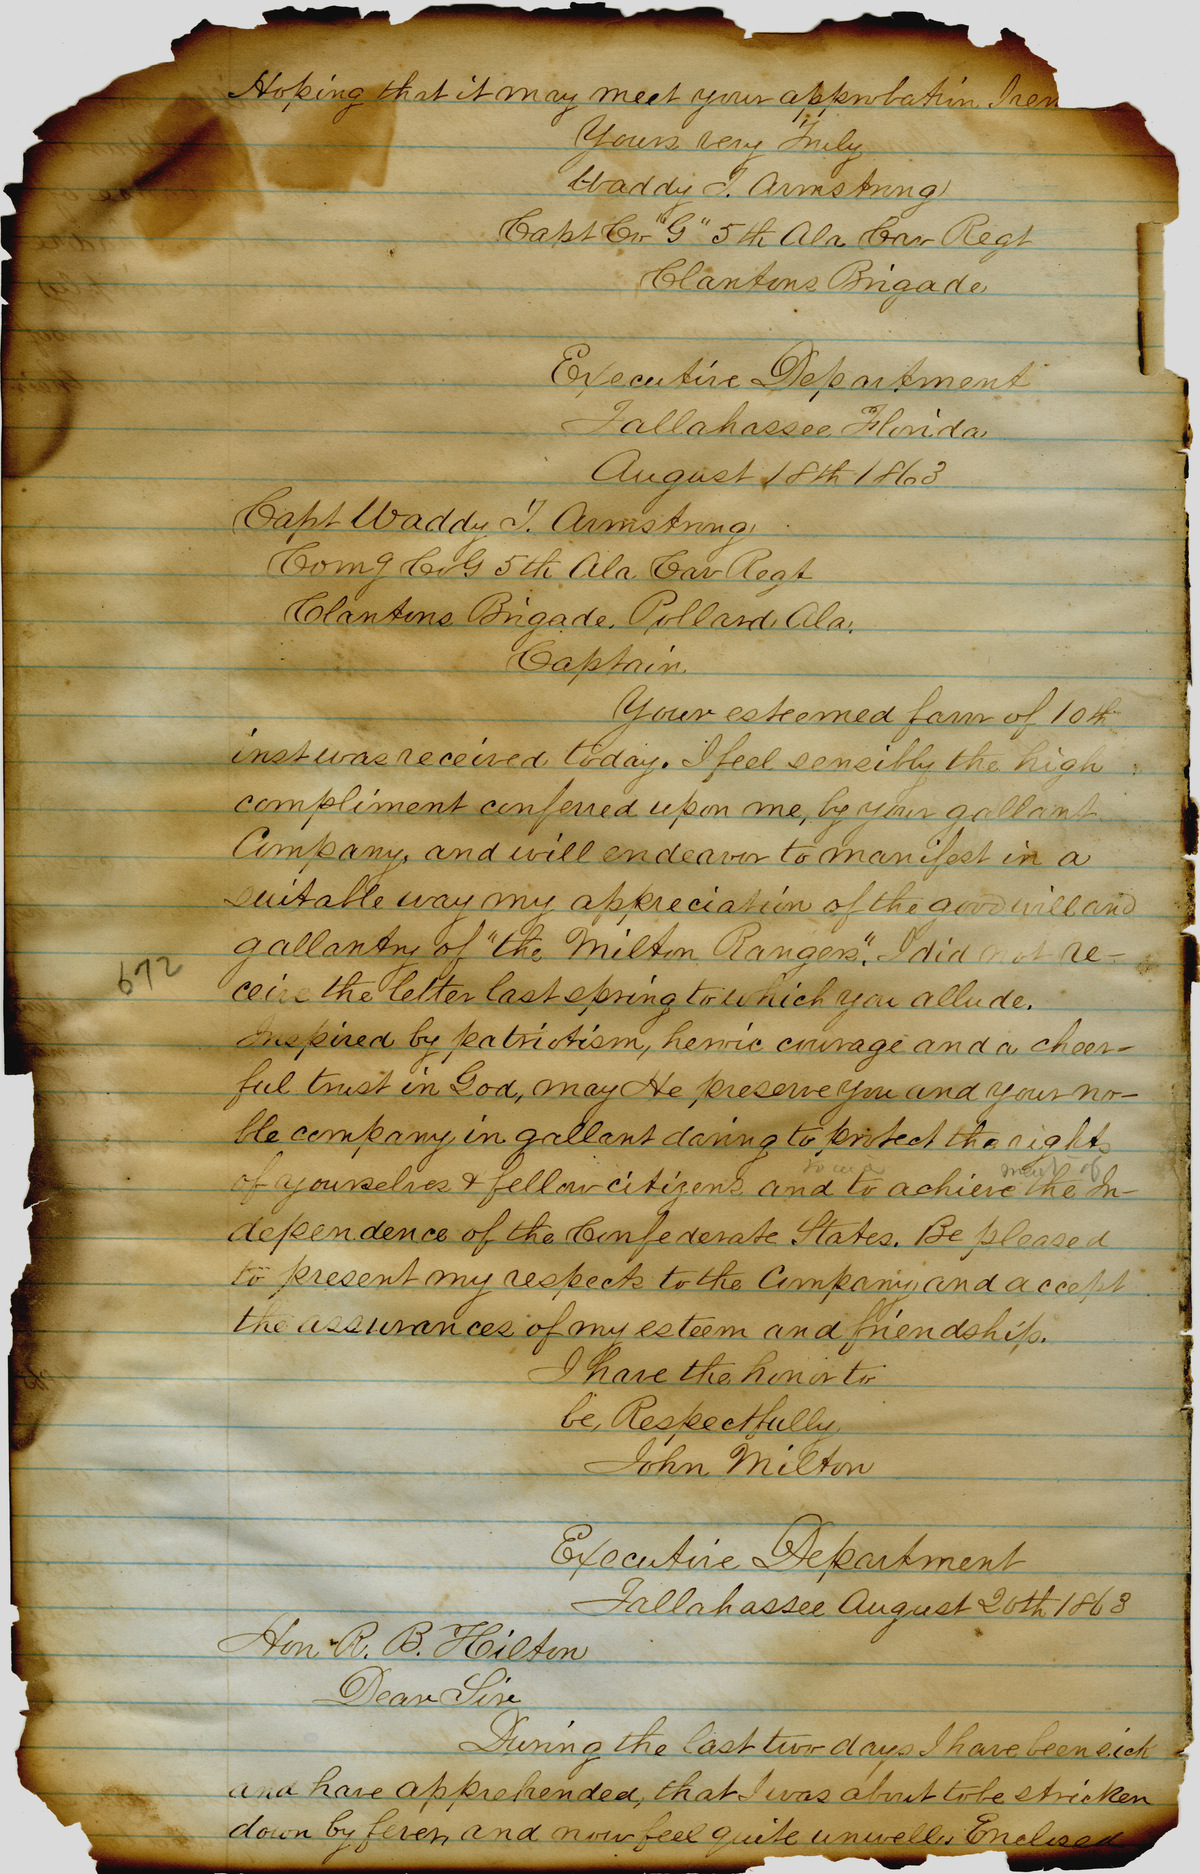 Hoping that it may meet your approbation I rem
Yours very Truly
Waddy T. Armstrong
Capt Co "G" 5th Ala Cav Regt
Clantons Brigade
Executive Department
Tallahassee Florida
August 18th 1863
Capt Waddy T. Armstrong
Comg Co G 5th Ala Cav Regt
Clantons Brigade. Pollard Ala.
Captain
Your esteemed favor of 10th
inst was received today. I feel sensibly the high
compliment conferred upon me, by your gallant
Company, and will endeavor to manifest in a
suitable way my appreciation of the good will and
gallantry of "the Milton Rangers". I did not re-
672
ceive the letter last spring to which you allude.
Inspired by patriotism, heroic courage and a cheer-
ful trust in God, may He preserve you and your no-
ble company in gallant daring to protect the rights
of yourselves & fellow citizens and to achieve the In-
dependence of the Confederate States. Be pleased
to present my respects to the Company and accept
the assurances of my esteem and friendship.
I have the honor to
be, Respectfully
John Milton
Executive Department
Tallahassee August 20th 1863
Hon R. B. Hilton
Dear Sir
During the last two days I have been sick
and have apprehended, that I was about to be stricken
down by fever, and now feel quite unwell. Enclosed